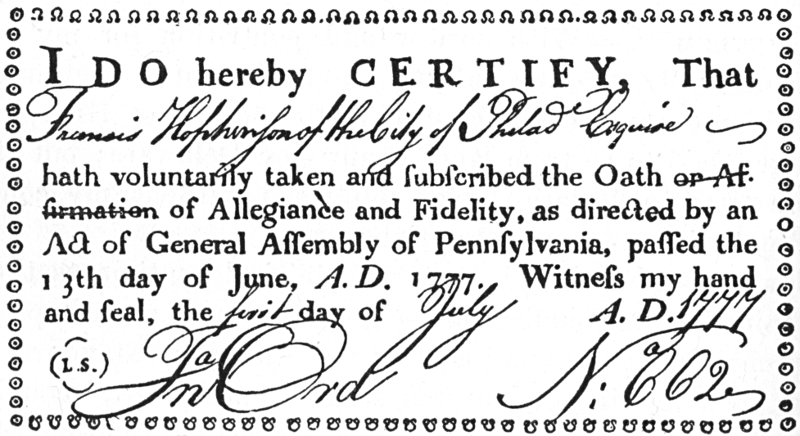 I DO hereby CERTIFY, That
Francis Hopkinson of the City of Philad Esquire
hath voluntarily taken and ſubſcribed the Oath or Af-
firmation of Allegiance and Fidelity, as directed by an
Act of General Aſſembly of Pennſylvania, paſſed the
13th day of June, A. D. 1777. Witneſs my hand
and ſeal, the first day of July A. D. 1777
(L.S.) Jnᵃ Ord